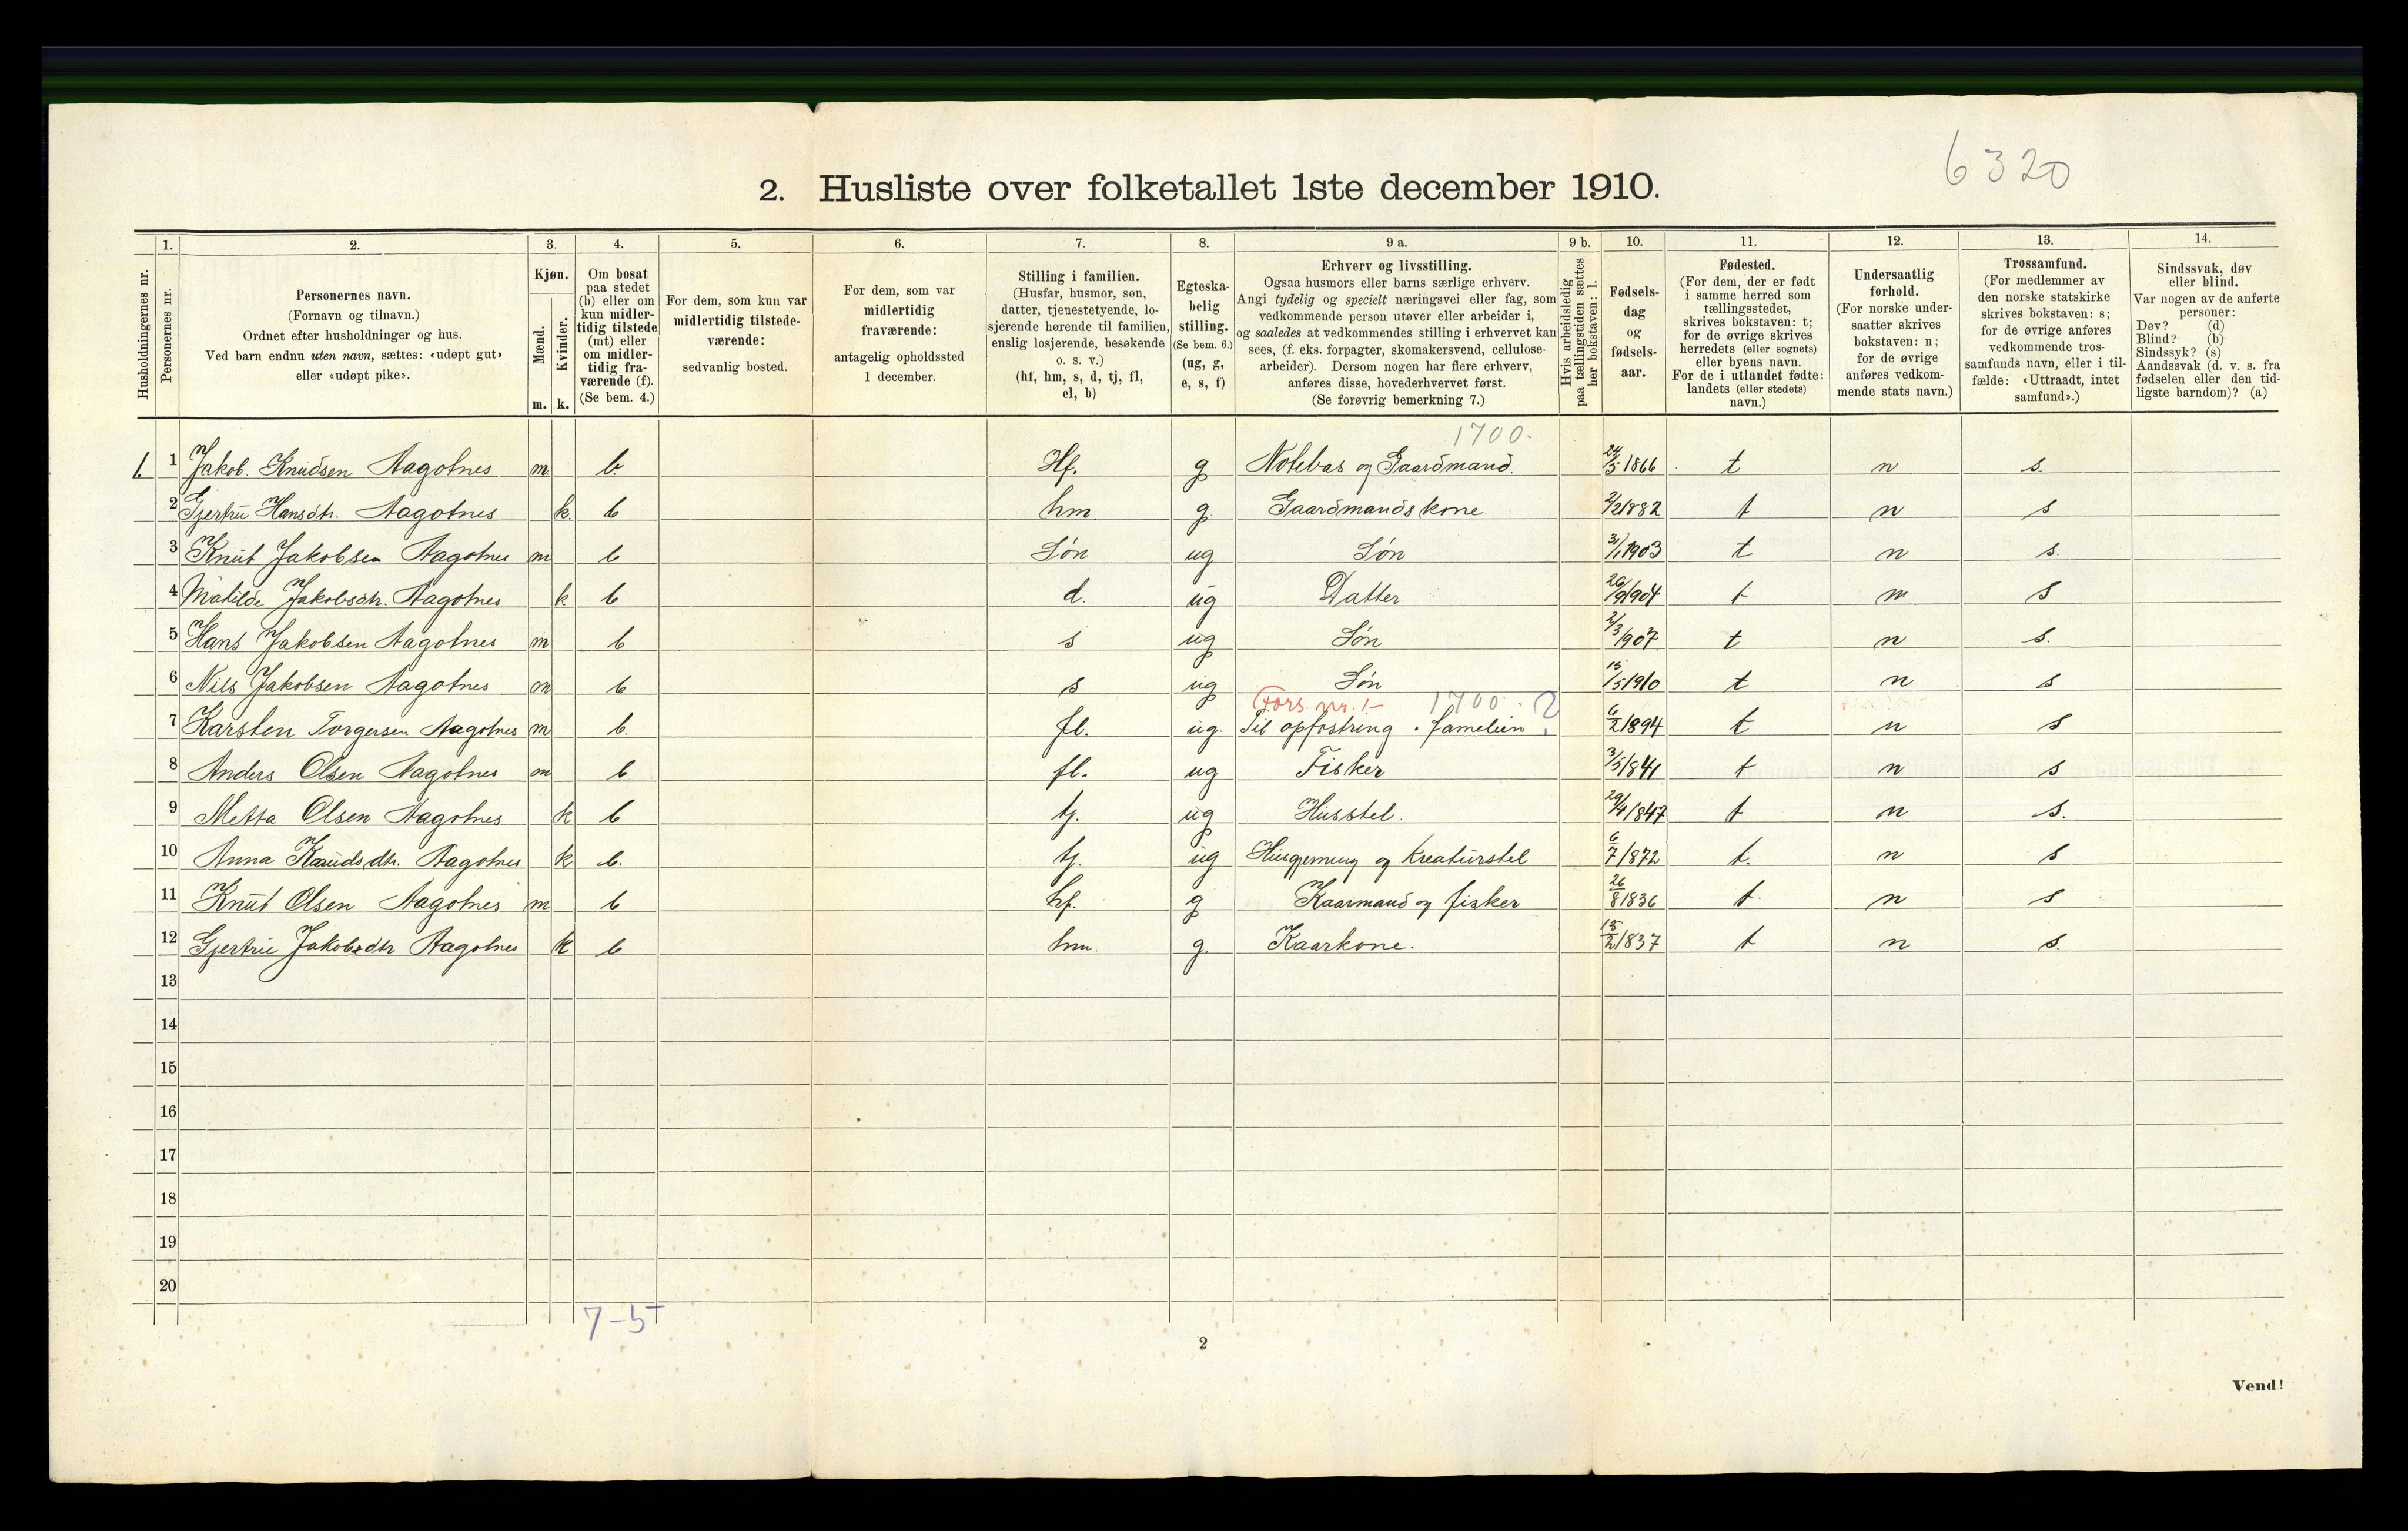 6320
2. Husliste over folketallet 1ste december 1910.
Husholdningernes nr.
1. Personernes nr.
2. Personernes navn.
(Fornavn og tilnavn.)
Ordnet efter husholdninger og hus.
Ved barn endnu uten navn, sættes: «udøpt gut»
eller «udøpt pike».
3. Kjøn.
Mænd. m.
Kvinder. k.
4. Om bosat
paa stedet
(b) eller om
kun midler-
tidig tilstede
(mt) eller
om midler-
tidig fra-
værende (f).
(Se bem. 4.)
5. For dem, som kun var
midlertidig tilstede-
værende:
sedvanlig bosted.
6. For dem, som var
midlertidig
fraværende:
antagelig opholdssted
1 december.
7. Stilling i familien.
(Husfar, husmor, søn,
datter, tjenestetyende, lo-
sjerende hørende til familien,
enslig losjerende, besøkende
o. s. v.)
(hf, hm, s, d, tj, fl,
el, b)
8. Egteska-
belig
stilling.
(Se bem. 6.)
(ug, g,
e, s, f)
9 a. Erhverv og livsstilling.
Ogsaa husmors eller barns særlige erhverv.
Angi tydelig og specielt næringsvei eller fag, som
vedkommende person utøver eller arbeider i,
og saaledes at vedkommendes stilling i erhvervet kan
sees, (f. eks. forpagter, skomakersvend, cellulose-
arbeider). Dersom nogen har flere erhverv,
anføres disse, hovederhvervet først.
(Se forøvrig bemerkning 7.)
9 b. Hvis arbeidsledig
paa tællingstiden sættes
her bokstaven: l.
10. Fødsels-
dag
og
fødsels-
aar.
11. Fødested.
(For dem, der er født
i samme herred som
tællingsstedet,
skrives bokstaven: t;
for de øvrige skrives
herredets (eller sognets)
eller byens navn.
For de i utlandet fødte:
landets (eller stedets)
navn.)
12. Undersaatlig
forhold.
(For norske under-
saatter skrives
bokstaven: n;
for de øvrige
anføres vedkom-
mende stats navn.)
13. Trossamfund.
(For medlemmer av
den norske statskirke
skrives bokstaven: s;
for de øvrige anføres
vedkommende tros-
samfunds navn, eller i til-
fælde: «Uttraadt, intet
samfund».)
14. Sindssvak, døv
eller blind.
Var nogen av de anførte
personer:
Døv? (d)
Blind? (b)
Sindssyk? (s)
Aandssvak (d. v. s. fra
fødselen eller den tid-
ligste barndom)? (a)
1700.
1. 1 Jakob. Knudsen Aagotnes m b. Hf. g Notebas og Gaardmand. 24/5 1866 t n s.
2 Gjertrü Hansdtr. Aagotnes k. b hm g Gaardmandskone 2/2 1882 t n s
3 Knut Jakobsen Aagotnes m b Søn ug Søn 31/1 1903 t n s.
4 Matilde Jakobsdtr. Aagotnes k b d. ug Datter 1904 t n s
5 Hans Jakobsen Aagotnes m b s ug Søn 2/3 1907 t n s.
6 Nils Jakobsen Aagotnes m b s ug Søn 15/5 1910 t n s
Fors. nr. 1- 1700. ?
7 Karsten Torgersen Aagotnes m b. fl. ug. Til opfostring i famelien 6/2 1894 t n s
8 Anders Olsen Aagotnes m b fl. ug Fisker 3/5 1841 t n s
9 Metta Olsen Aagotnes k b tj. ug Husstel. 29/4 1847 t n s.
10 Anna Knudsdtr. Aagotnes k b. tj. ug Husgjerning og Kreaturstel 6/7 1872 t. n s
11 Knut Olsen Aagotnes m b hf. g Kaarmand og fisker 26/8 1836 t n s
12 Gjertrü Jakobsdtr Aagotnes k b hm. g. Kaarkone. 15/2 1837 t n s.
13
14
15
16
17
18
19
20
7-5
2
Vend!